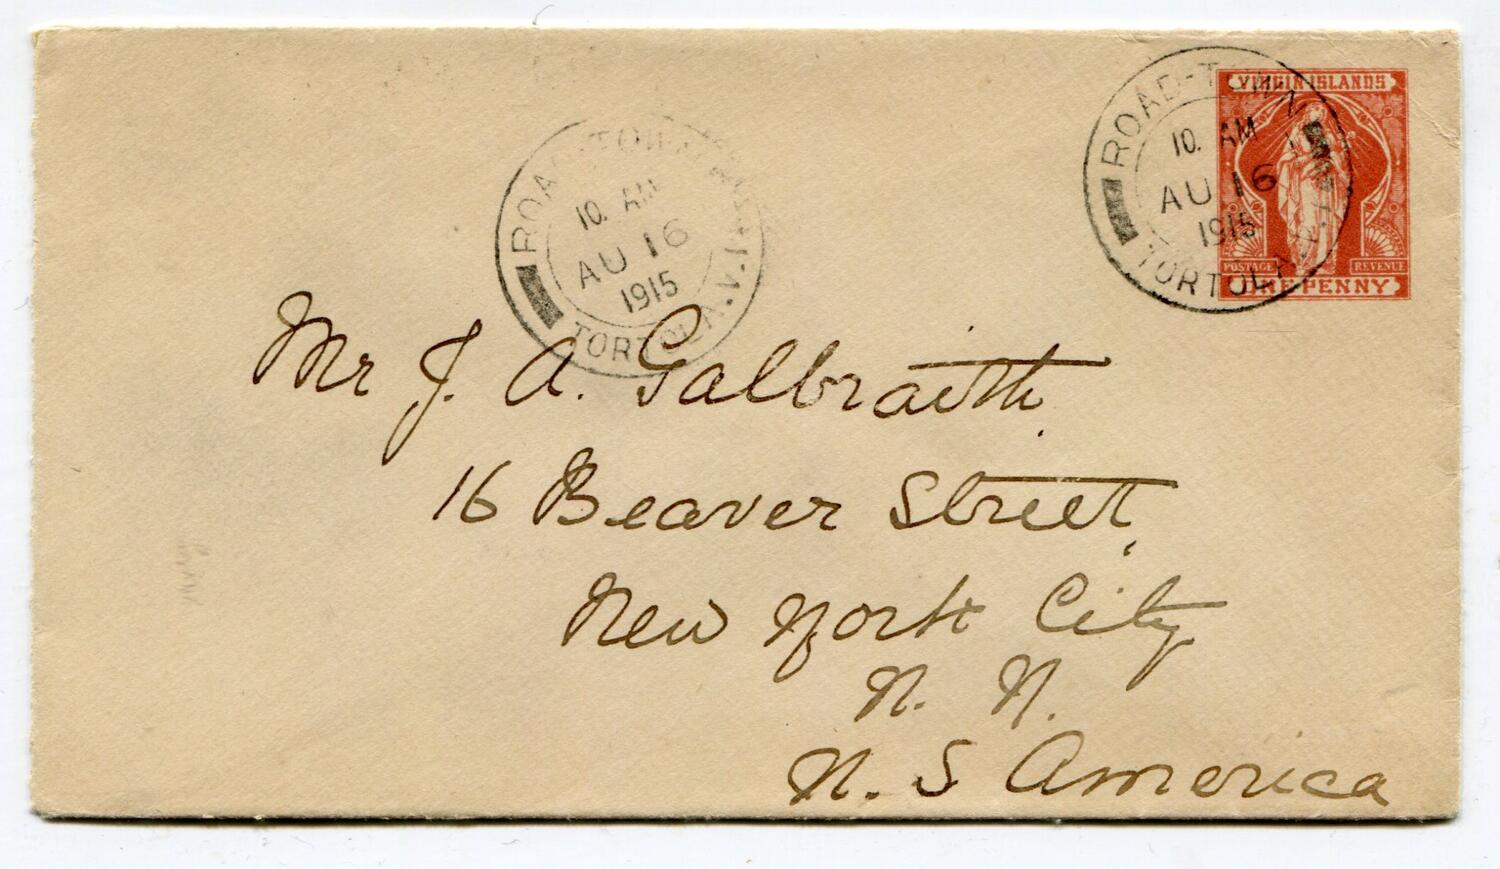 VIRGIN ISLANDS
POSTAGE REVENUE
ONE PENNY
ROAD-TOWN
10. AM
AU 16
1915
TORTOLA.V.I.
ROAD-TOWN
10. AM
AU 16
1915
TORTOLA.V.I.
Mr J. A. Galbraith
16 Beaver Street,
New York City
N. Y.
U. S America